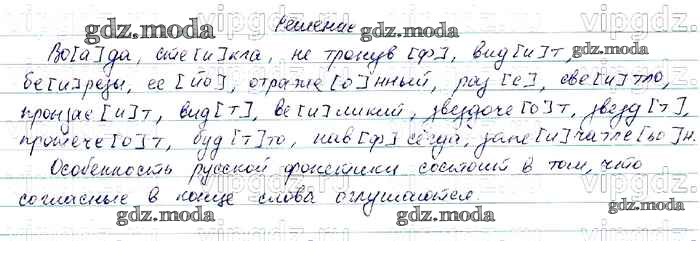 Решение
Во[а]да, сте[и]кла, не тронув [ф], вид[и]т,
бе[и]резы, ее [йо], отраже[о]нный, раз [с], све[и]тло,
пронзае[и]т, вид[т], ве[и]ликий, звездоче[о]т, звезд [т],
протече[о]т, буд[т]то, нав[ф]сегда, запе[и]чатле[ьо]н.
Особенность русской фонетики состоит в том, что
согласные в конце слова оглушаются.
gdz.moda
gdz.moda
gdz.moda
vipgdz.ru
gdz.moda
gdz.moda
gdz.moda